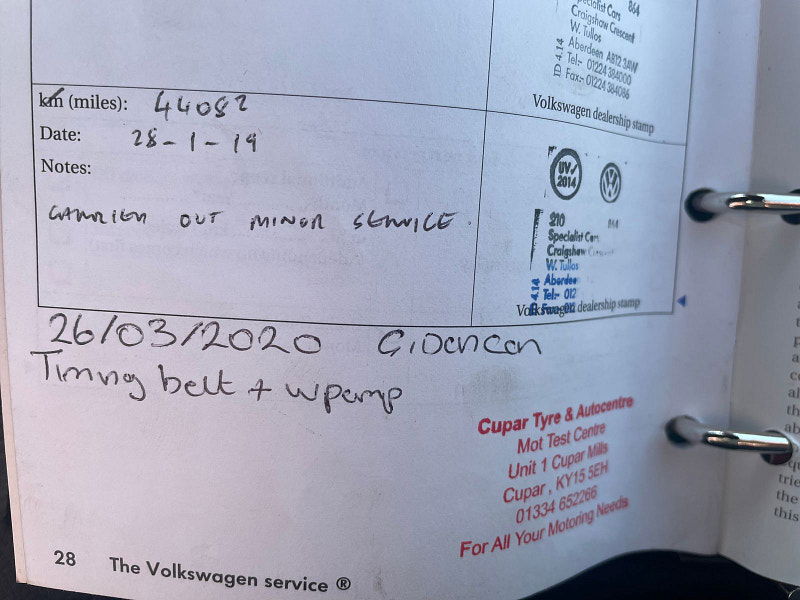 864
Specialist Cars
Craigshaw Crescent
W. Tullos
Aberdeen AB12 3AW
ID 4.14 Tel:- 01224 384000
Fax:- 01224 384086
Volkswagen dealership stamp
km (miles): 44082
Date: 28-1-19
Notes:
CARRIED OUT MINOR SERVICE.
UV/
2014
210 864
Specialist Cars
Craigshaw Crescent
W. Tullos
Aberdee
4.14 Tel:- 012
Volkswagen dealership stamp
26/03/2020
Timing belt + w pamp
Cupar Tyre & Autocentre
Mot Test Centre
Unit 1 Cupar Mills
Cupar , KY15 5EH
01334 652266
For All Your Motoring Needs
28 The Volkswagen service ®